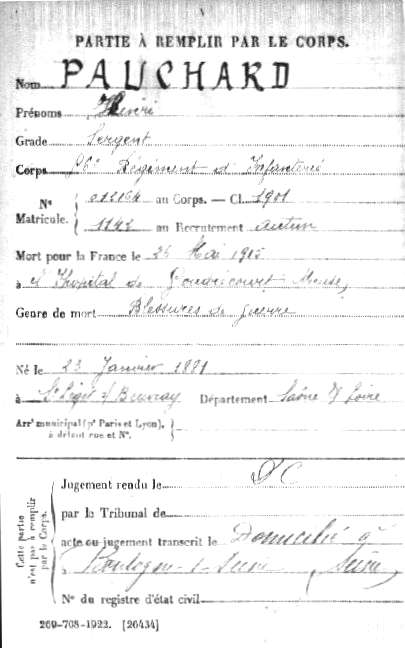 PARTIE À REMPLIR PAR LE CORPS.
Nom PAUCHARD
Prénoms Henri
Grade Sergent
Corps 56e Régiment d'Infanterie
N° 012164 au Corps. — Cl. 1901
Matricule. 1142 au Recrutement Autun
Mort pour la France le 26 Mai 1915
à l'hôpital de Gondrecourt Meuse,
Genre de mort Blessures de guerre
Né le 23 Janvier 1881
à St Léger s/ Beuvray Département Saône & Loire
Arrt municipal (pr Paris et Lyon),
à défaut rue et N°.
Cette partie
n'est pas à remplir
par le Corps.
Jugement rendu le
par le Tribunal de
acte ou jugement transcrit le Domicilié
à Boulogne-s-Seine Seine
N° du registre d'état civil
269-708-1922. [26434]